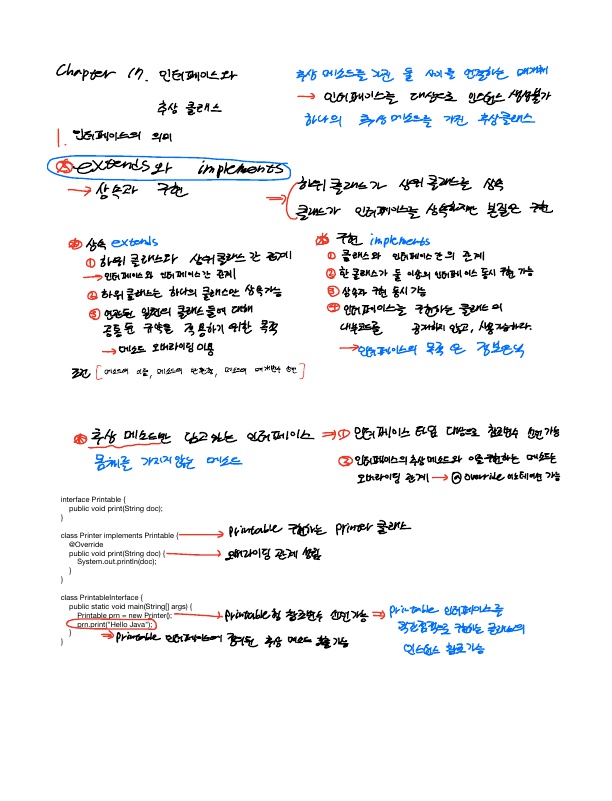 Chapter 17. 인터페이스와
추상 클래스
추상 메소드를 가진 둘 사이를 연결하는 매개체
→ 인터페이스를 대상으로 인스턴스 생성불가
하나의 추상 메소드를 가진 추상클래스
1. 인터페이스의 의미
extends와 implements
→ 상속과 구현
⇒ 하위 클래스가 상위 클래스를 상속
클래스가 인터페이스를 상속하지만 본질은 구현
상속 extends
① 하위 클래스와 상위 클래스 간 관계
→ 인터페이스와 인터페이스 간 관계
② 하위 클래스는 하나의 클래스만 상속가능
③ 연관된 일련의 클래스들에 대해
공통된 규약을 적용하기 위한 목적
→ 메소드 오버라이딩 이용
조건 [메소드의 이름, 메소드의 반환형, 메소드의 매개변수 선언]
구현 implements
① 클래스와 인터페이스 간의 관계
② 한 클래스가 둘 이상의 인터페이스 동시 구현 가능
③ 상속과 구현 동시 가능
④ 인터페이스를 구현하는 클래스의
내부코드를 공개하지 않고, 사용가능하다.
→ 인터페이스의 목적은 정보은닉
추상 메소드만 담고있는 인터페이스 ⇒ ① 인터페이스 타입 대상으로 참조변수 선언 가능
몸체를 가지지 않는 메소드
② 인터페이스의 추상 메소드와 이를 구현하는 메소드는
오버라이딩 관계 → @Override 어노테이션 가능
interface Printable {
public void print(String doc);
}
class Printer implements Printable { → Printable 구현하는 Printer 클래스
@Override
public void print(String doc) { → 오버라이딩 관계 성립
System.out.println(doc);
}
}
class PrintableInterface {
public static void main(String[] args) {
Printable prn = new Printer(); → Printable형 참조변수 선언 가능 ⇒ Printable 인터페이스를
prn.print("Hello Java");
직간접적으로 구현하는 클래스의
인스턴스 참조가능
}
⇒ Printable 인터페이스에 정의된 추상 메소드 호출가능
}